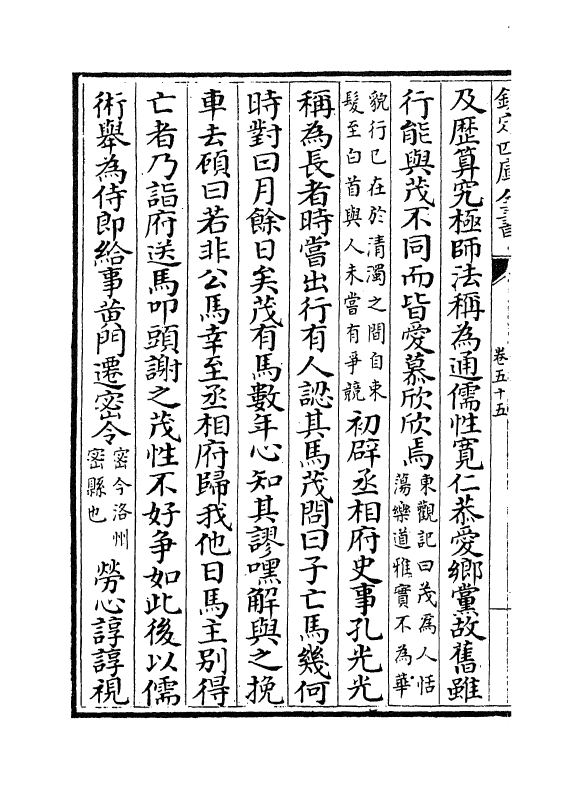 欽定四庫全書
卷五十五
及歴算究極師法稱為通儒性寛仁恭愛鄉黨故舊雖
行能與茂不同而皆愛慕欣欣焉東觀記曰茂為人恬蕩樂道雅實不為華
貌行已在於清濁之間自束髪至白首與人未嘗有爭競初辟丞相府史事孔光光
稱為長者時嘗出行有人認其馬茂問曰子亡馬幾何
時對曰月餘日矣茂有馬數年心知其謬嘿解與之挽
車去顧曰若非公馬幸至丞相府歸我他日馬主别得
亡者乃詣府送馬叩頭謝之茂性不好争如此後以儒
術舉為侍郎給事黄門遷密令密今洛州密縣也勞心諄諄視